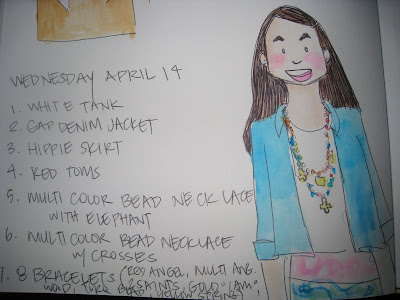 WEDNESDAY APRIL 14
1. WHITE TANK
2. GAP DENIM JACKET
3. HIPPIE SKIRT
4. RED TOMS
5. MULTI COLOR BEAD NECKLACE
WITH ELEPHANT
6. MULTI COLOR BEAD NECKLACE
W/ CROSSES
7. 8 BRACELETS (RED ANGEL, MULTI ANG.
WOOD, SAINTS, GOLD "I AM",
YELLOW STRING)